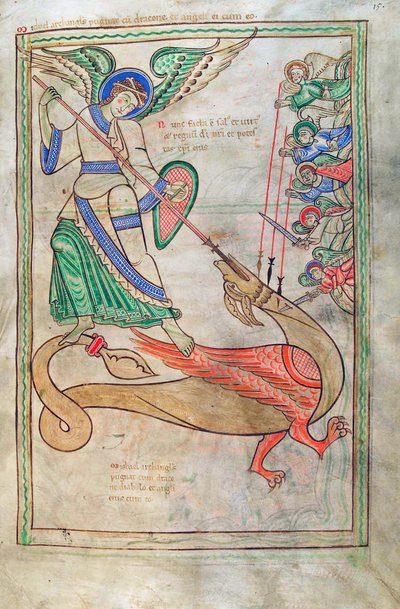 15.
Michael archangls pugnat cū dracone. et angeli ei cum eo.
Nunc facta ē sal' et virt'
et regnū di nri et potes
tas xpi eius.
Michael archangls
pugnat cum draco
ne diabolo. et angli
eius cum eo.